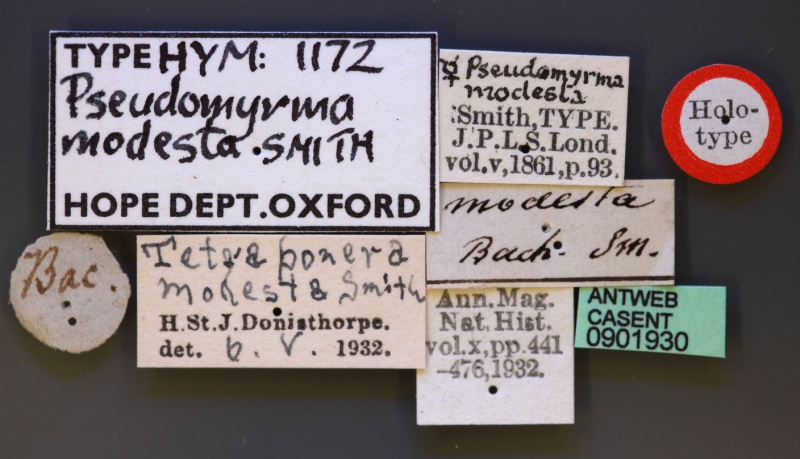 TYPE HYM: 1172
Pseudomyrma
modesta. SMITH
HOPE DEPT. OXFORD
☿ Pseudomyrma
modesta
Smith, TYPE.
J.P.L.S. Lond.
vol.v, 1861, p.93.
Holo-
type
modesta
Bach. Sm.
Bac.
Tetraponera
modesta Smith
H. St. J. Donisthorpe.
det. 6. V. 1932.
Ann. Mag.
Nat. Hist.
vol.x, pp.441
-476, 1932.
ANTWEB
CASENT
0901930